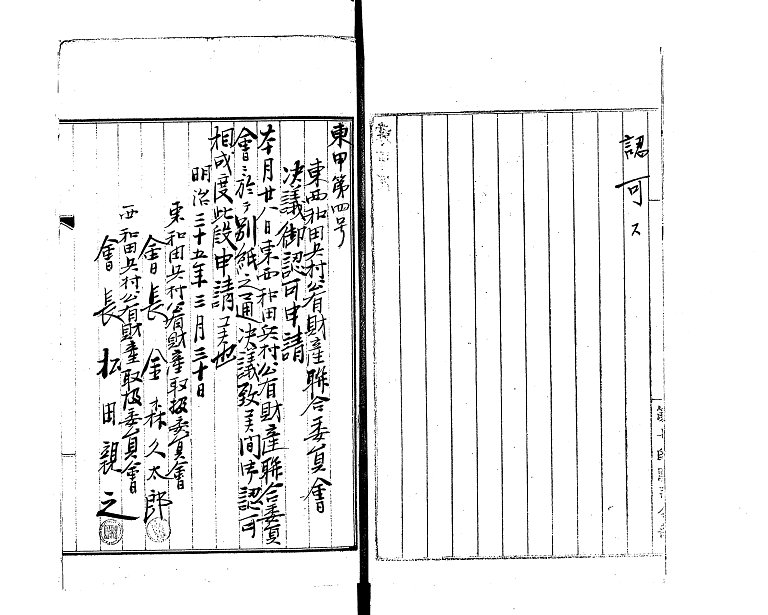 認可ス
東甲第四号
東西和田兵村公有財產聯合委員會
決議御認可申請
本月廿八日東西和田兵村公有財產聯合委員
會ニ於テ別紙之通决議致候間御認可
相成度此段申請候也
明治三十五年三月三十日
東和田兵村公有財產取扱委員會
會長 金森久太郎
西和田兵村公有財產取扱委員會
會長 松田親之